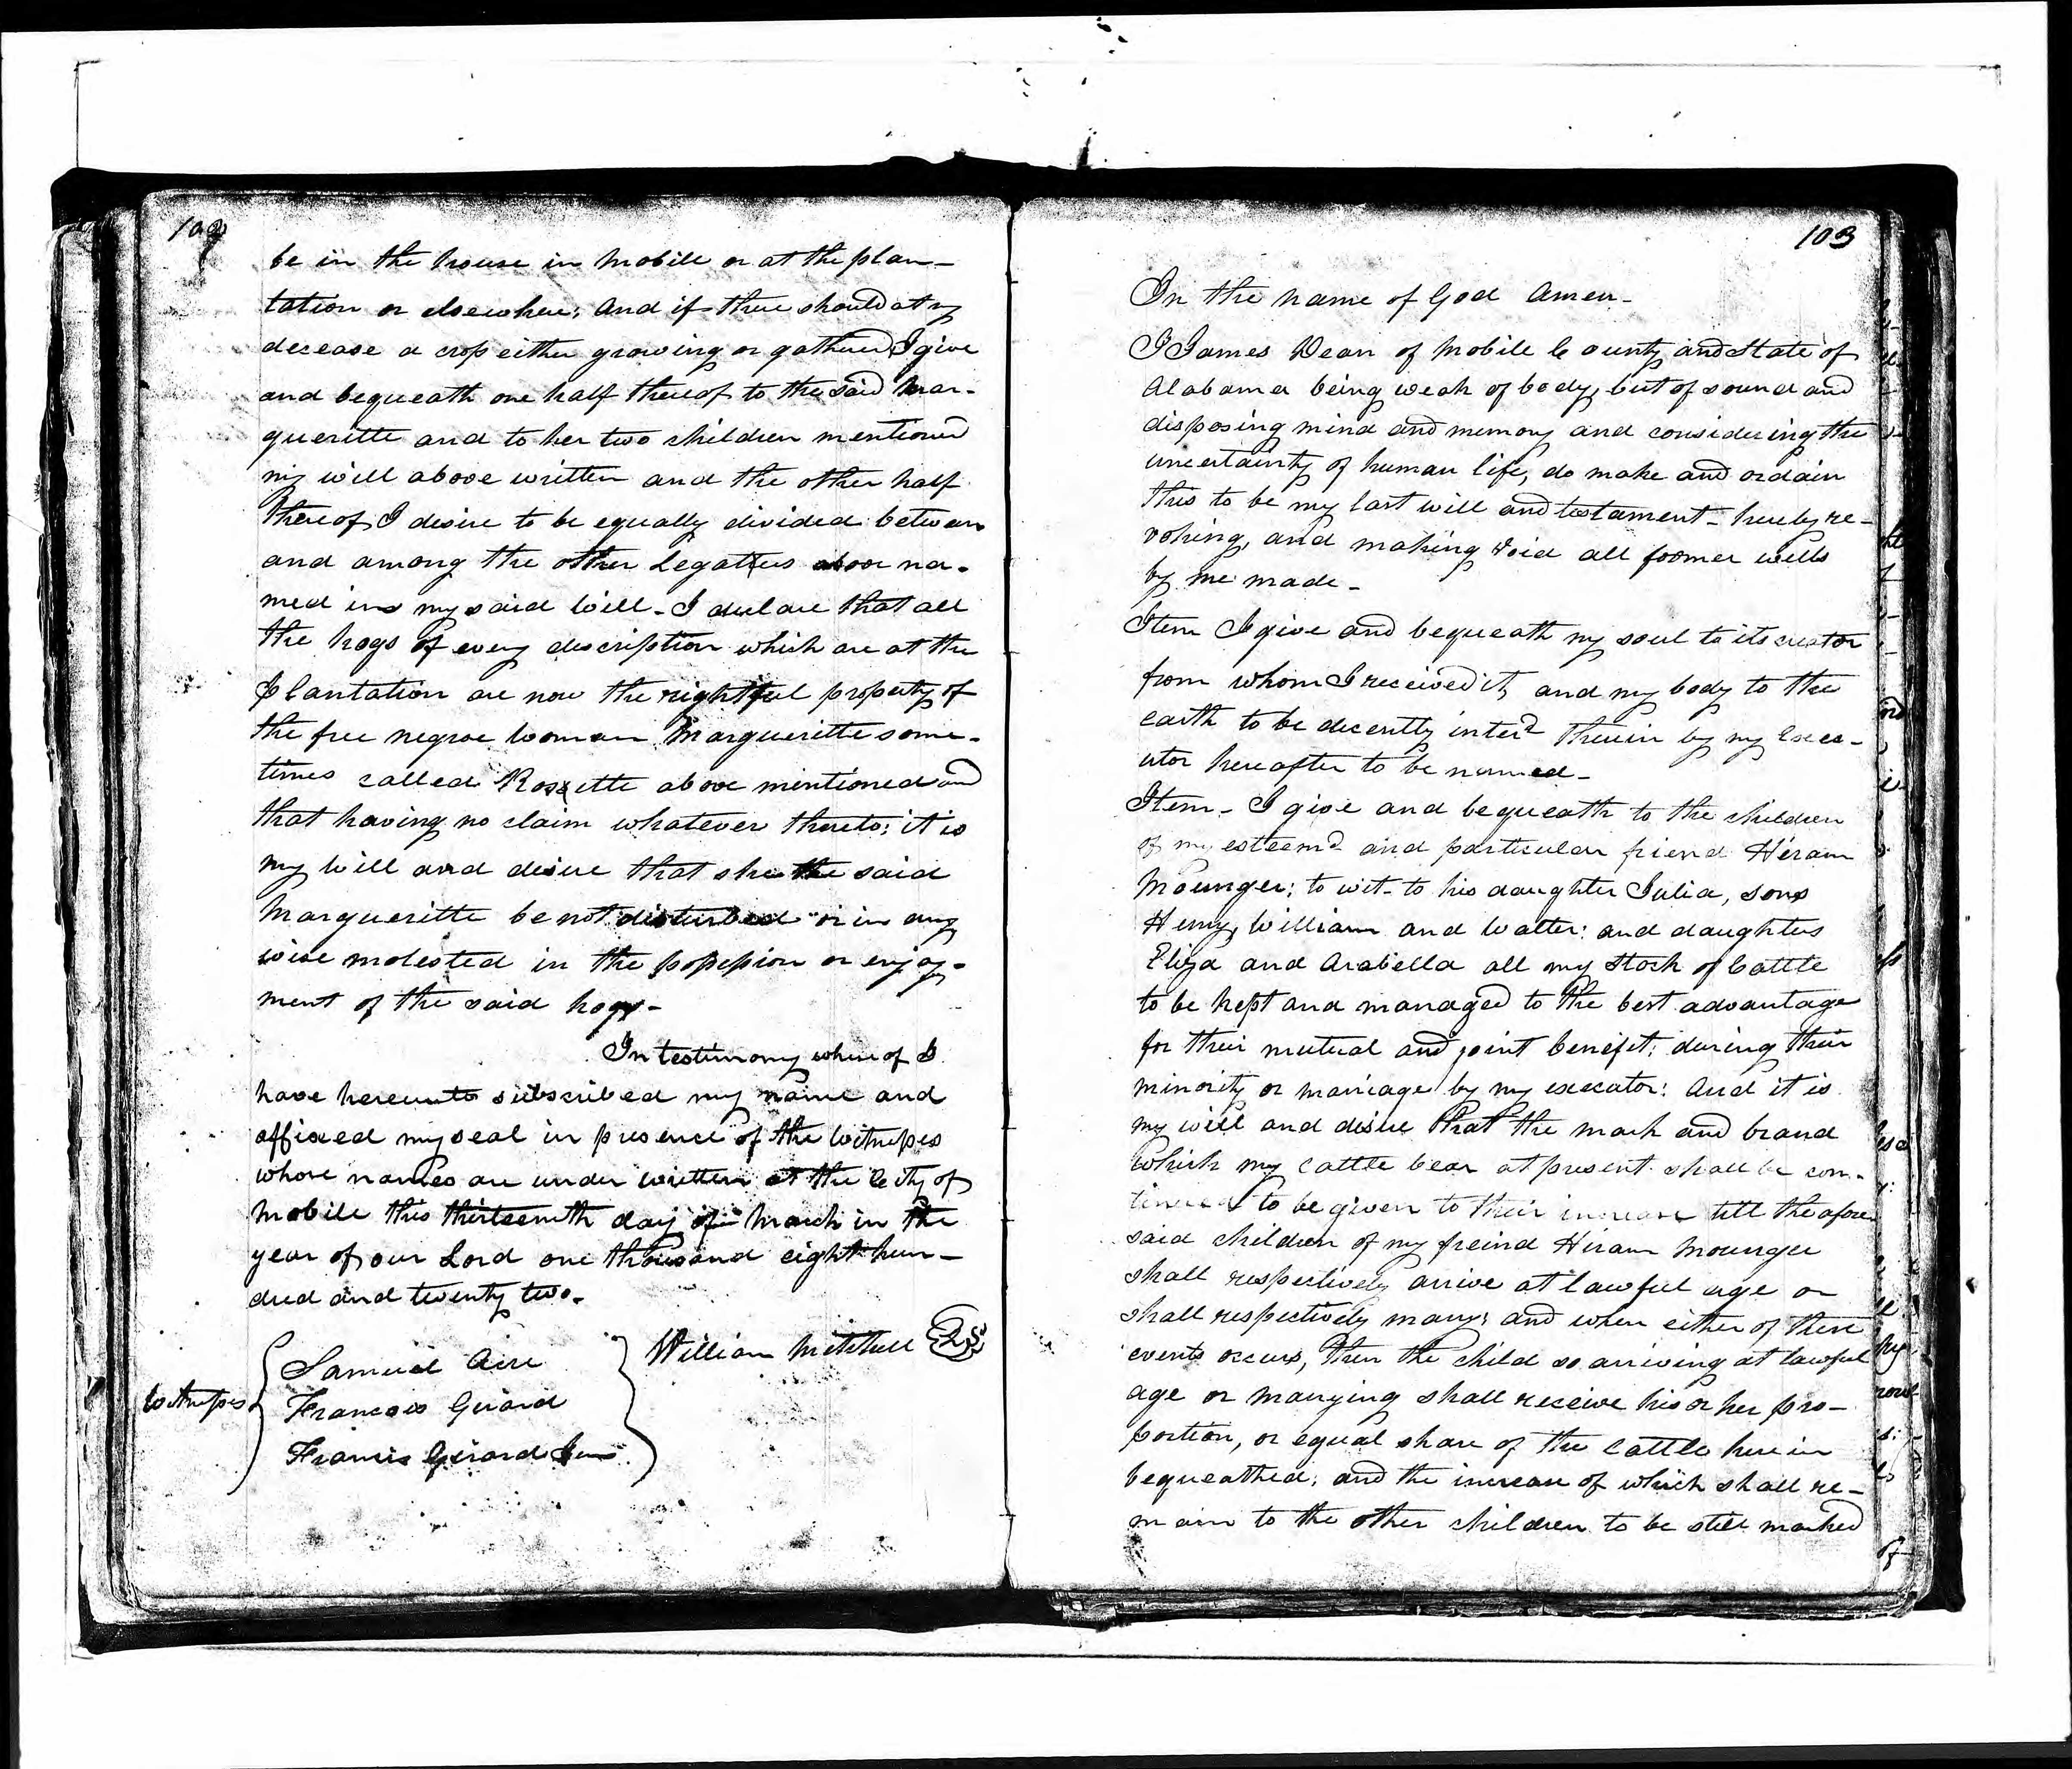 102
be in the house in Mobile or at the plan-
tation or elsewhere; And if there should at my
decease a crop either growing or gathered I give
and bequeath one half thereof to the said Mar-
gueritte and to her two children mentioned
my will above written and the other half
thereof I desire to be equally divided between
and among the other Legattees above na-
med in my said Will - I declare that all
the hogs of every description which are at the
Plantation are now the rightful property of
the free negroe Woman Margueritte some-
times called Rosette above mentioned and
that having no claim whatever thereto; it is
my Will and desire that she the said
Margueritte be not disturbed or in any
wise molested in the possession or enjoy-
ment of the said hogs -
In testimony whereof I
have hereunto subscribed my name and
affixed my seal in presence of the Witnesses
whose names are under written at the City of
Mobile this thirteenth day of March in the
year of our Lord one thousand eight hun-
dred and twenty two.
William Mitchell
Witnesses
Samuel Acre
Francois Girard
Francis Girard Jun
103
In the name of God Amen -
I James Dean of Mobile County and State of
Alabama being weak of body, but of sound and
disposing mind and memory and considering the
uncertainty of human life, do make and ordain
this to be my last will and testament - hereby re-
voking, and making void all former wills
by me made -
Item I give and bequeath my soul to its creator
from whom I received it, and my body to the
earth to be decently interd therein by my Exec-
utor hereafter to be named -
Item - I give and bequeath to the children
of my esteemd and particular friend Hiram
Mounger; to wit - to his daughter Julia, sons
Henry, William and Walter: and daughters
Eliza and Arabella all my Stock of Cattle
to be kept and managed to the best advantage
for their mutual and joint benefit; during their
minority or marriage by my executor: And it is
my will and desire that the mark and brand
which my Cattle bear at present shall be con-
tinued to be given to their increase till the afore
said children of my freind Hiram Mounger
shall respectively arrive at lawful age or
shall respectively marry; and when either of these
events occurs, then the child so arriving at lawful
age or marrying shall receive his or her pro-
portion, or equal share of the Cattle herein
bequeathed; and the increase of which shall re-
main to the other children to be still marked